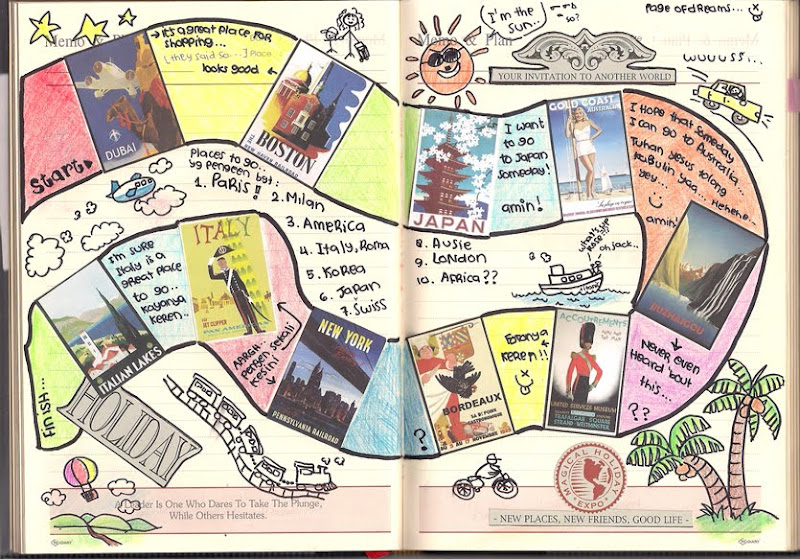 Memo & Plan
Start
DUBAI
→ it's a great place for
shopping...
(they said so...) Place
looks good ←
BOSTON
NEW HAVEN RAILROAD
Places to go...
yg pengeen bgt:
1. PARIS!!
2. Milan
3. America
4. Italy, Roma
5. Korea
6. Japan
7. Swiss
I'm sure
Italy is a
great place
to go..
kayanya
keren..
ITALY
JET CLIPPER
PAN AMERICAN
AARGH..
pengen sekali
kesini
NEW YORK
PENNSYLVANIA RAILROAD
ITALIAN LAKES
FINISH...
HOLIDAY
A Leader Is One Who Dares To Take The Plunge,
While Others Hesitates.
(I'm the
sun..)
so?
Memo & Plan
page of dreams...
YOUR INVITATION TO ANOTHER WORLD
wuuuss...
JAPAN
I want
to go
to Japan
someday!
amin!
GOLD COAST
AUSTRALIA
I hope that someday
I can go to Australia..
Tuhan Yesus tolong
kabulin yaa... hehehe...
yey...
amin!
8. Aussie
9. London
10. Africa??
what's your
name??
oh, jack..
Never even
heard 'bout
this...
??
ACCOUTREMENTS
UNITED SERVICES MUSEUM
TRAFALGAR SQUARE
STRAND WESTMINSTER
Fotonya
keren!!
BORDEAUX
?
MAGICAL HOLIDAY
EXPO
- NEW PLACES, NEW FRIENDS, GOOD LIFE -